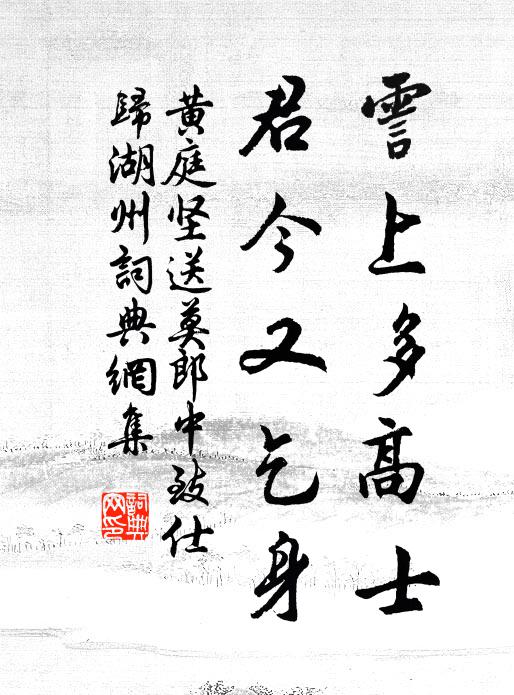 霅上多高士
君今又乞身
黄庭坚送莫郎中致仕
歸湖州詞典網集
詞典網印